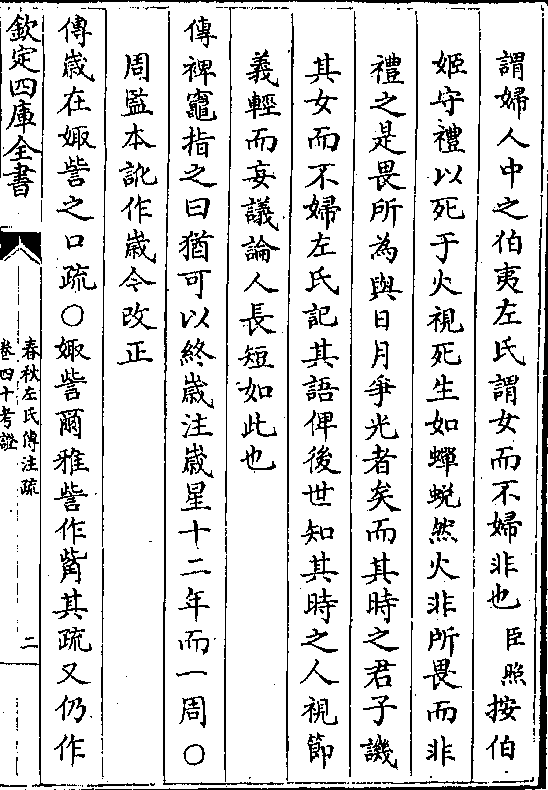 謂婦人中之伯夷左氏謂女而不婦非也臣照按伯
姬守禮以死于火視死生如蟬蛻然火非所畏而非
禮之是畏所為與日月爭光者矣而其時之君子譏
其女而不婦左氏記其語俾後世知其時之人視節
義輕而妄議論人長短如此也
傳裨竈指之曰猶可以終歲注歲星十二年而一周○
周監本訛作歲今改正
傳歲在娵訾之口疏○娵訾爾雅訾作觜其疏又仍作
欽定四庫全書
春秋左氏傳注疏
卷四十考證
二